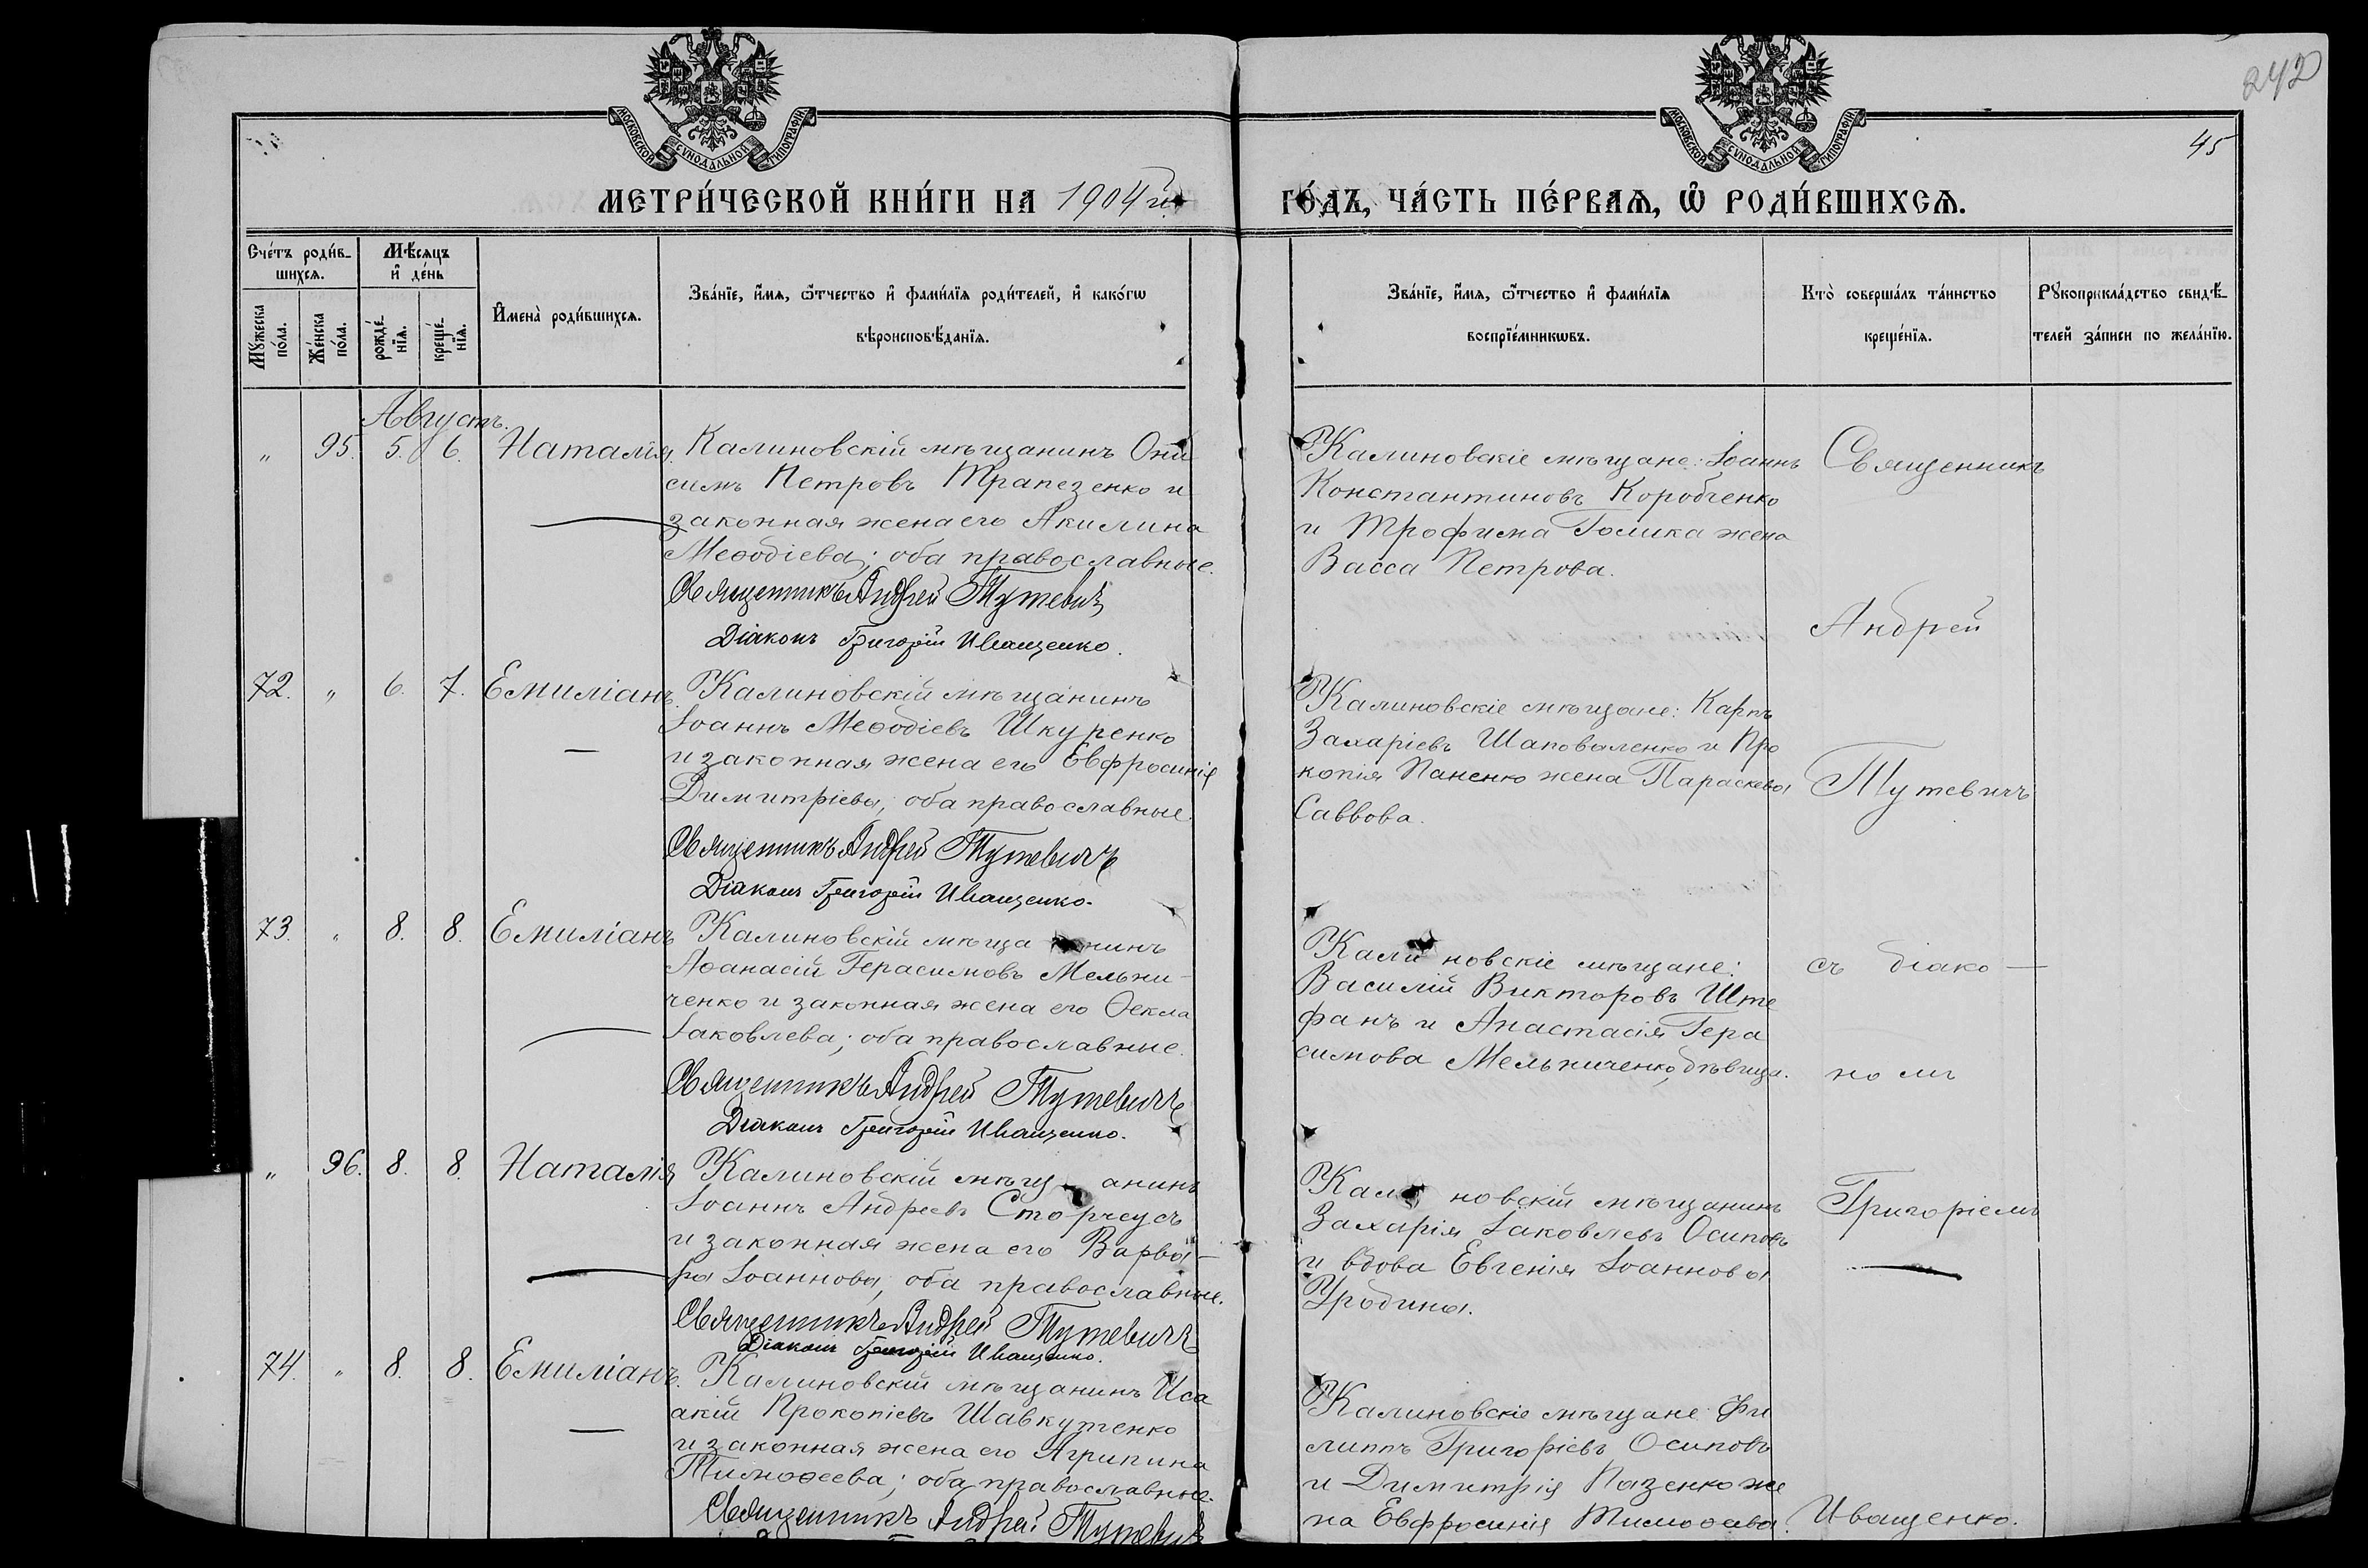 242
45
МОСКОВСКОЙ СѴНОДАЛЬНОЙ ТИПОГРАФІИ
МОСКОВСКОЙ СѴНОДАЛЬНОЙ ТИПОГРАФІИ
МЕТРИ́ЧЕСКОЙ КНИ́ГИ НА 1904 й
ГО́ДЪ, ЧА́СТЬ ПЕ́РВАѦ, Ѡ҆ РОДИ́ВШИХСѦ.
Сче́тъ роди́в-
шихсѧ.
Мꙋ́жеска по́ла.
Же́нска по́ла.
Мѣ́сѧцъ
и҆ де́нь
рожде́-
нїѧ.
креще́-
нїѧ.
И҆мена̀ роди́вшихсѧ.
Зва́нїе, и҆́мѧ, ѻ҆́тчество и҆ фами́лїѧ роди́телей, и҆ како́гѡ
вѣроисповѣ́данїѧ.
Зва́нїе, и҆́мѧ, ѻ҆́тчество и҆ фами́лїѧ
воспрїе́мникѡвъ.
Кто̀ соверша́лъ та́инство
креще́нїѧ.
Рꙋкоприкла́дство свидѣ́-
телей за́писи по жела́нїю.
Августъ.
„ 95. 5. 6. Наталія.
Калиновскій мѣщанинъ Они
симъ Петровъ Трапезенко и
законная жена его Акилина
Меѳодіева; оба православные.
Священникъ Андрей Тутевичъ
Діаконъ Григорій Иващенко.
Калиновскіе мѣщане: Іоаннъ
Константиновъ Коробченко
и Трофима Голика жена
Васса Петрова.
Священникъ
Андрей
72. „ 6. 7. Емиліанъ.
Калиновскій мѣщанинъ
Іоаннъ Меѳодіевъ Шкуренко
и законная жена его Евфросинія
Димитріева; оба православные.
Священникъ Андрей Тутевичъ
Діаконъ Григорій Иващенко.
Калиновскіе мѣщане: Карпъ
Захаріевъ Шаповаленко и Про
копія Паненко жена Параскева
Саввова.
Тутевичъ
73. „ 8. 8. Емиліанъ
Калиновскій мѣщанинъ
Аѳанасій Герасимовъ Мельни-
ченко и законная жена его Ѳекла
Іаковлева; оба православные.
Священникъ Андрей Тутевичъ
Діаконъ Григорій Иващенко.
Калиновскіе мѣщане:
Василій Викторовъ Ште
фанъ и Анастасія Гера
симова Мельниченко, дѣвица.
съ діако-
номъ
„ 96. 8. 8. Наталія
Калиновскій мѣщанинъ
Іоаннъ Андреевъ Сторчеусъ
и законная жена его Варва-
ра Іоаннова; оба православные.
Священникъ Андрей Тутевичъ
Діаконъ Григорій Иващенко.
Калиновскій мѣщанинъ
Захарія Іаковлевъ Осиповъ
и вдова Евгенія Іоаннова
Уродина.
Григоріемъ
74. „ 8. 8. Емиліанъ.
Калиновскій мѣщанинъ Иса
акій Прокопіевъ Шавкутенко
и законная жена его Агрипина
Тимоѳеева; оба православные.
Священникъ Андрей Тутевичъ
Калиновскіе мѣщане Фи
липпъ Григоріевъ Осиповъ
и Димитрія Пазенко же
на Евфросинія Тимоѳеева.
Иващенко.